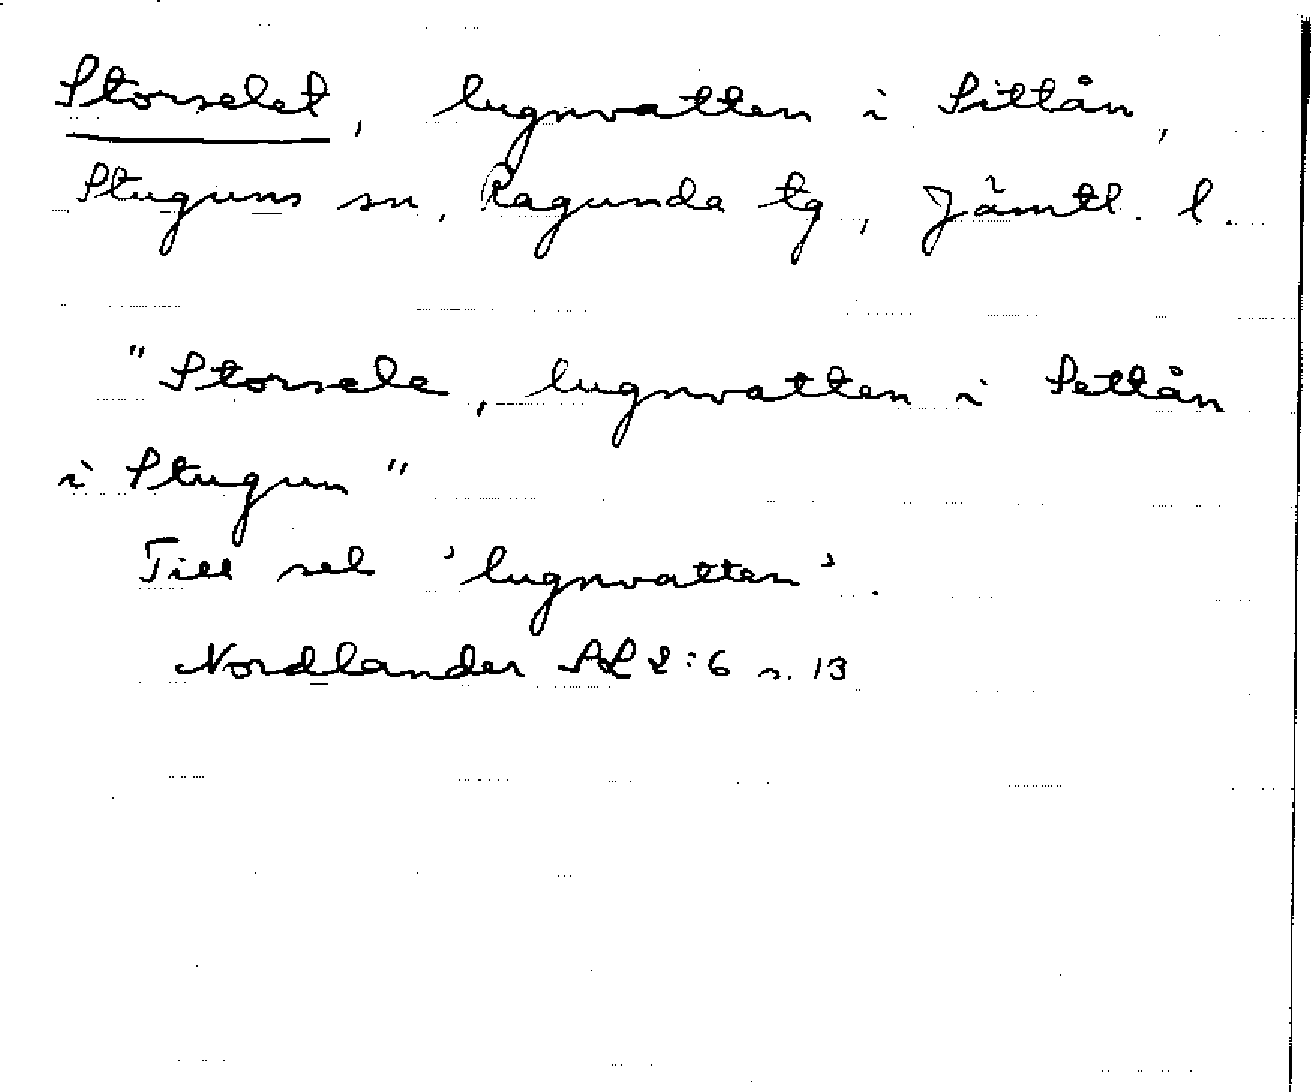 Storselet, lugnvatten i Sittån,
Stuguns sn, Ragunda tg, Jämtl. l.
"Storsele, lugnvatten i Settån
i Stugun"
Till sel 'lugnvatten'.
Nordlander AL 2:6 s. 13